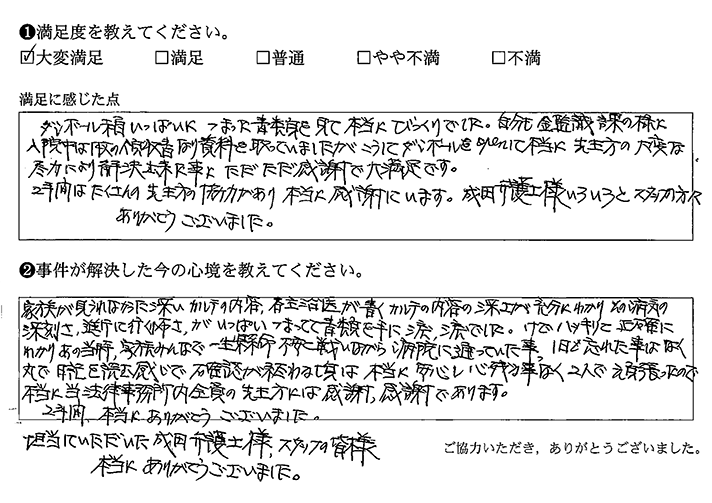 ❶満足度を教えてください。
☑大変満足 □満足 □普通 □やや不満 □不満
満足に感じた点
ダンボール箱いっぱいに つまった書類を見て 本当に びっくりでした。自分も
入院中は 資料を取っていましたが こうして ダンボールを 本当に 先生方の 大変な
尽力により解決出来た事に ただただ感謝で大満足です。
2年間は たくさんの 先生方の 協力があり 本当に 感謝しています。成田弁護士様 いろいろと スタッフの方々
ありがとう ございました。
❷事件が解決した今の心境を教えてください。
家族が カルテの内容、 主治医が書く カルテの内容の深さが 充分にわかり その病気の
深刻さ、 が いっぱい つまってて 書類を手に 涙、涙でした。 ハッキリと 正確に
わかり あの当時、家族みんなで 一生懸命 不安と戦いながら 病院に 通っていた事、 1日も 忘れた事はなく
本当に 安心し 心残る事なく 2人で 元気
本当に 当法律事務所内全員の 先生方には 感謝、感謝で あります。
2年間 本当に ありがとう ございました。
担当していただいた 成田弁護士様、スタッフの皆様
本当に ありがとうございました。
ご協力いただき，ありがとうございました。